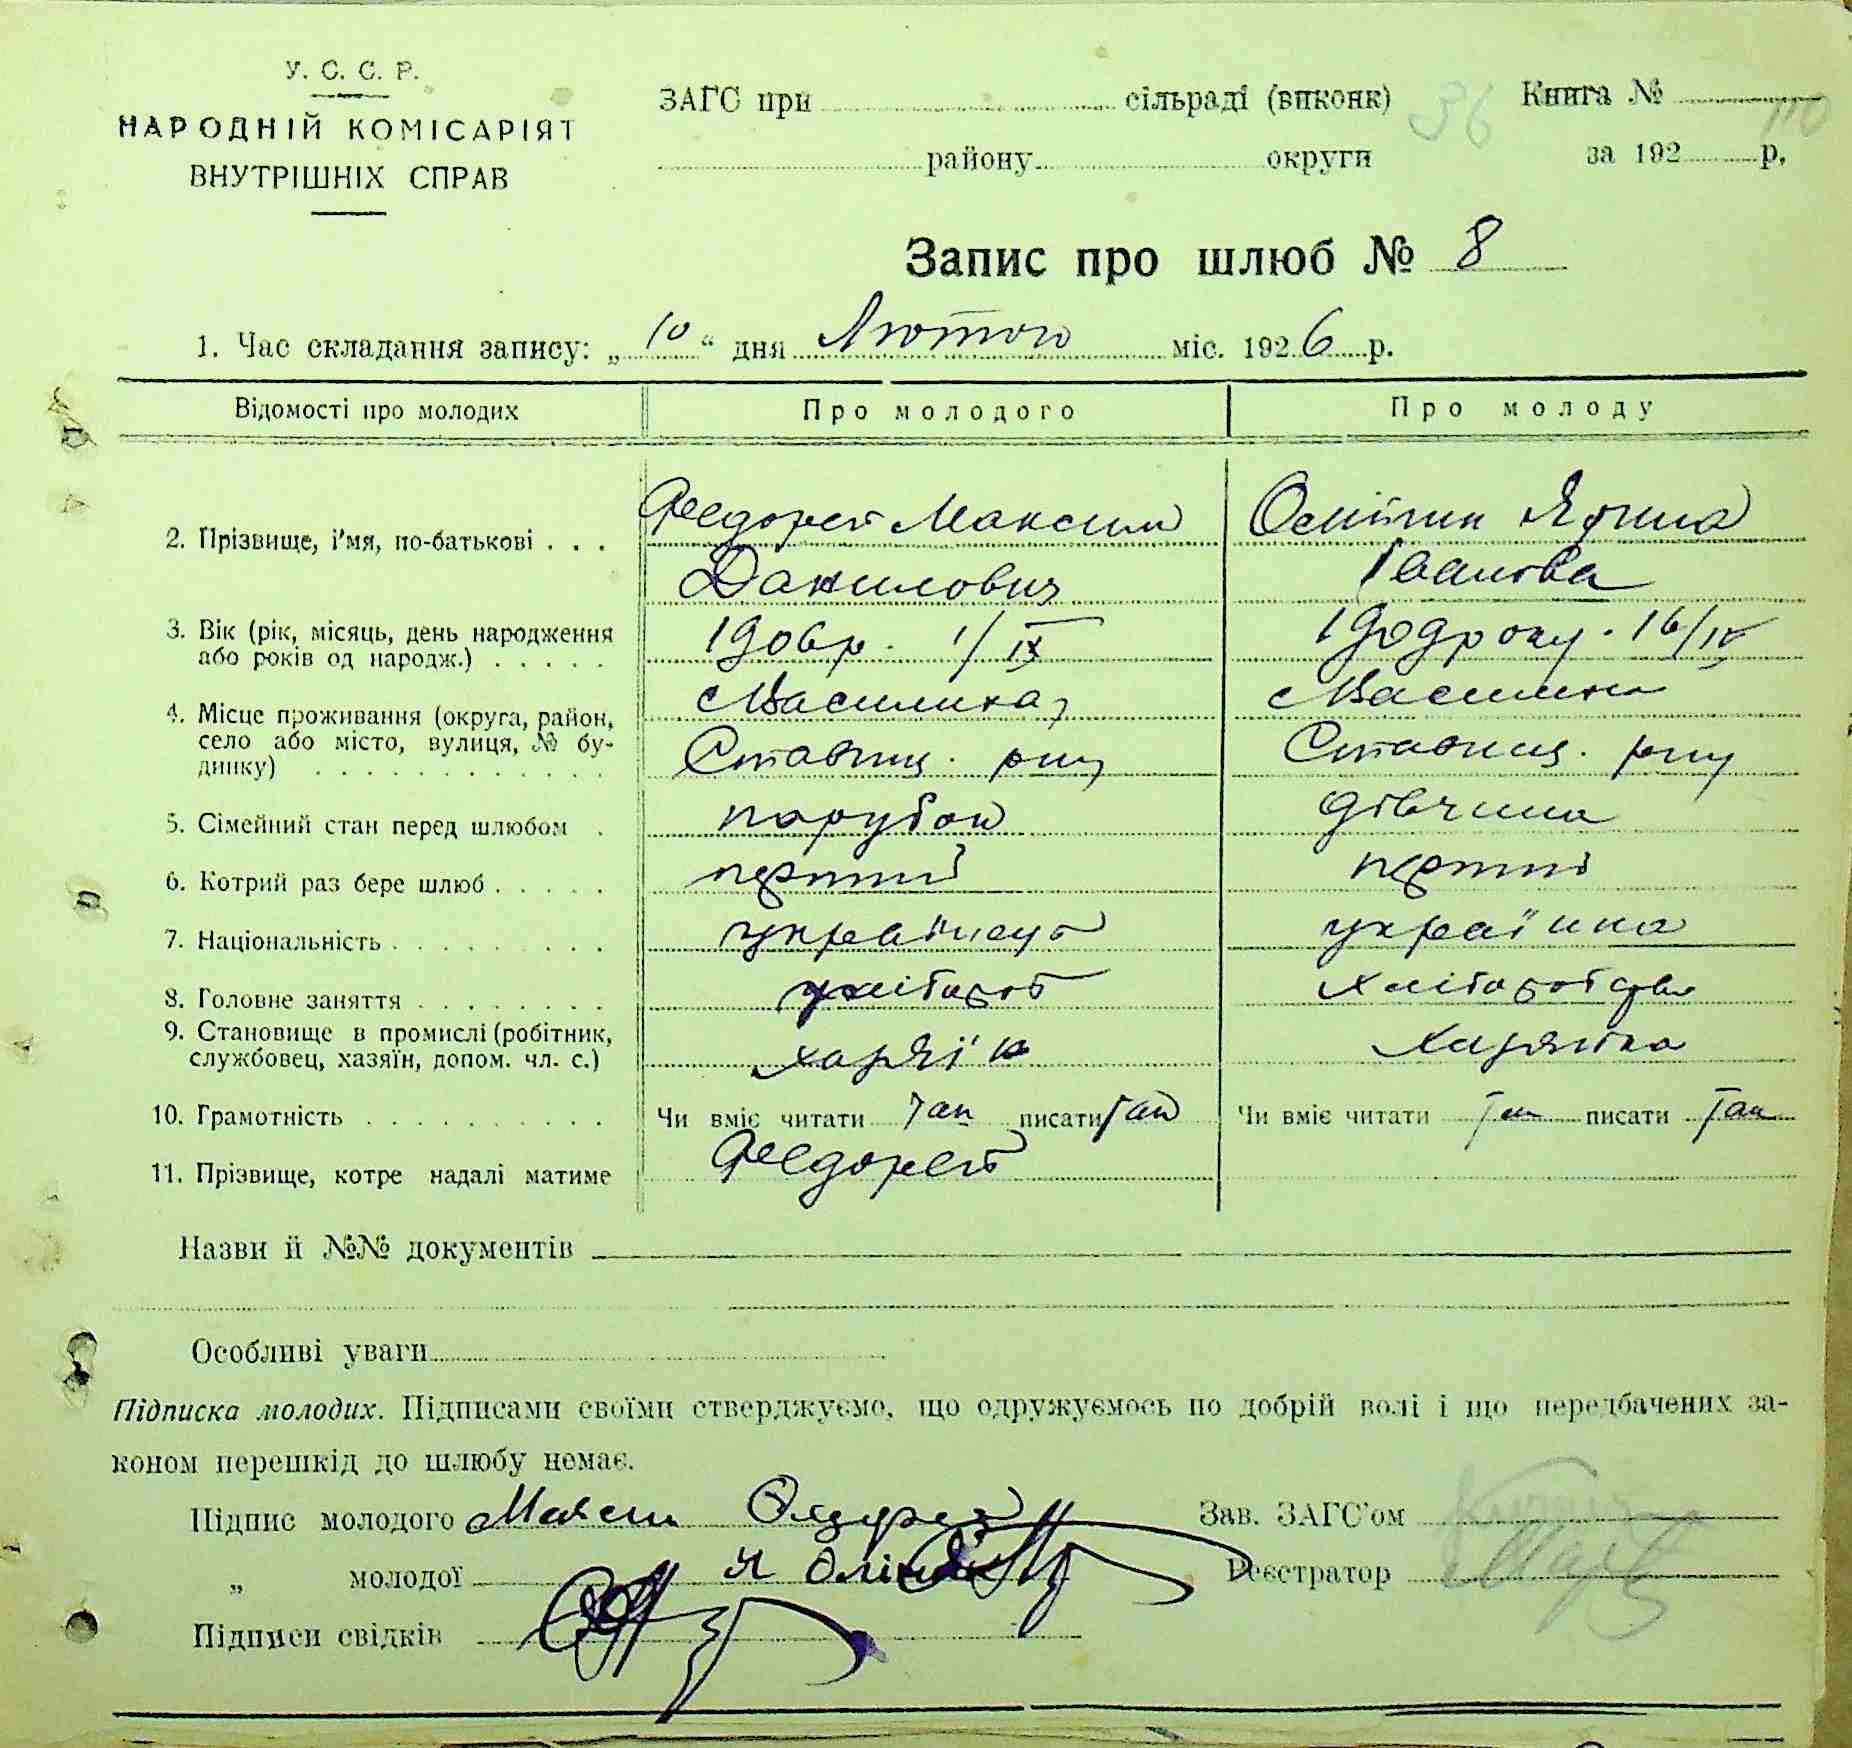 У. С. С. Р.
НАРОДНІЙ КОМІСАРІЯТ
ВНУТРІШНІХ СПРАВ
ЗАГС при сільраді (виконк) 36 Книга № 110
району округи за 192 р.
Запис про шлюб № 8
1. Час складання запису: „ 10 “ дня Лютого міс. 1926 р.
Відомості про молодих Про молодого Про молоду
2. Прізвище, і'мя, по-батькові . . . Максим Ярина
Данилович Іванова
3. Вік (рік, місяць, день народження 1906 р. 1/IX 16/IV
або років од народж.) . . . . .
4. Місце проживання (округа, район, Василиха Василиха
село або місто, вулиця, № бу- Ставищ. р-ну Ставищ. р-ну
динку) . . . . . . . . . . . .
5. Сімейний стан перед шлюбом . парубок дівчина
6. Котрий раз бере шлюб . . . . . перший перший
7. Національність . . . . . . . . . українець українка
8. Головне заняття . . . . . . . . хлібороб хліборобство
9. Становище в промислі (робітник, хазяїн хазяйка
службовец, хазяїн, допом. чл. с.)
10. Грамотність . . . . . . . . . . Чи вміє читати так писати так Чи вміє читати так писати так
11. Прізвище, котре надалі матиме
Назви й №№ документів
Особливі уваги
Підписка молодих. Підписами своїми стверджуємо, що одружуємось по добрій волі і що передбачених за-
коном перешкід до шлюбу немає.
Підпис молодого Зав. ЗАГС'ом
„ молодої Реєстратор
Підписи свідків